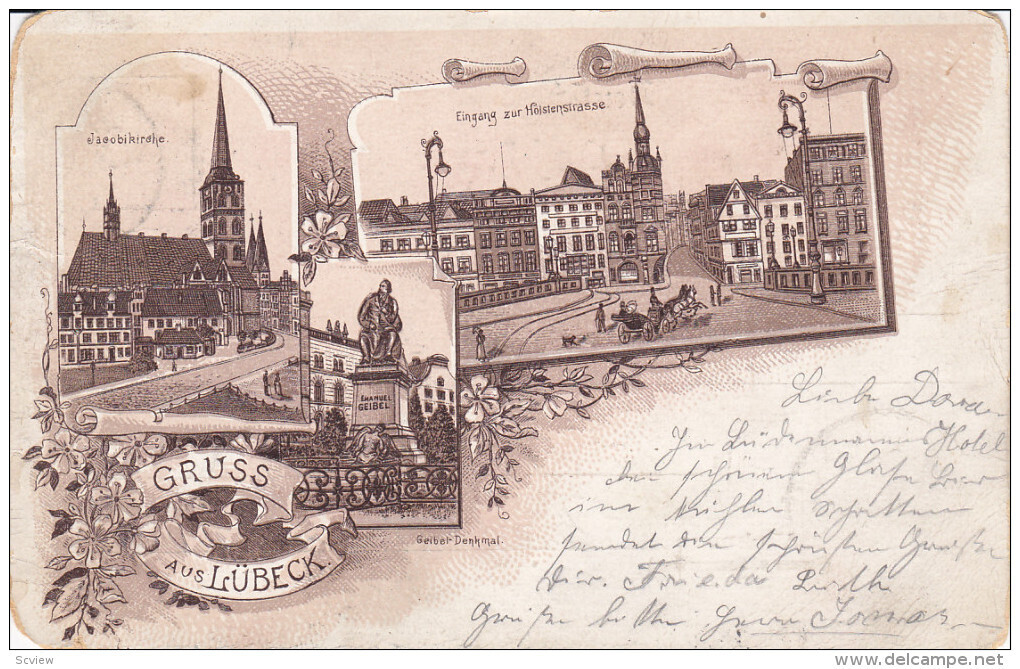 Jacobikirche.
Eingang zur Holstenstrasse
EMANUEL
GEIBEL
GRUSS
AUS LÜBECK.
Geibel-Denkmal.
Liebe Dora
In Lüdermanns Hotel
den schönen Glase Bier
im kühlen Schatten
sendet den schönsten Gruß
Dir. Frieda
Grüße bitte Herrn
Scview
delcampe.net